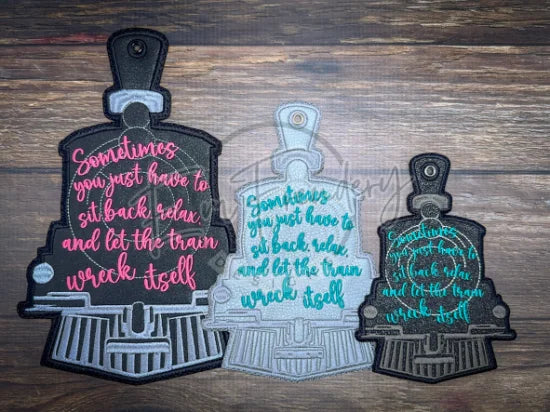 Sometimes
you just have to
sit back, relax,
and let the train
wreck itself
Sometimes
you just have to
sit back, relax,
and let the train
wreck itself
Sometimes
you just have to
sit back, relax,
and let the train
wreck itself